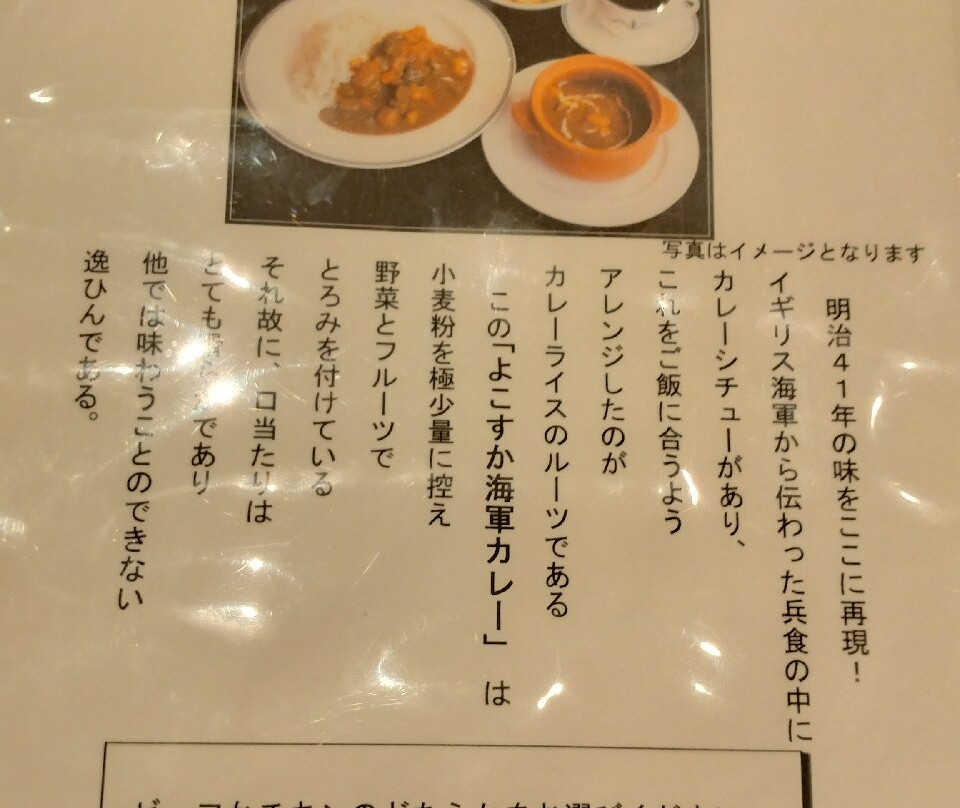 写真はイメージとなります
明治41年の味をここに再現！
イギリス海軍から伝わった兵食の中に
カレーシチューがあり、
これをご飯に合うよう
アレンジしたのが
カレーライスのルーツである
この「よこすか海軍カレー」は
小麦粉を極少量に控え
野菜とフルーツで
とろみを付けている
それ故に、口当たりは
とても であり
他では味わうことのできない
逸ひんである。